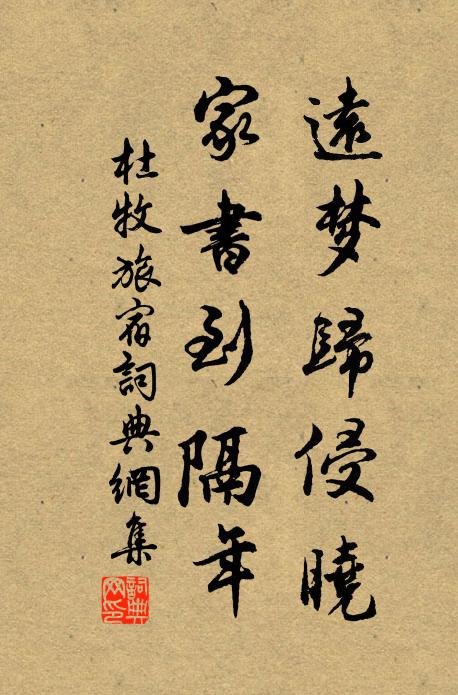 遠梦歸侵曉
家書到隔年
杜牧旅宿詞典網集
詞典网印